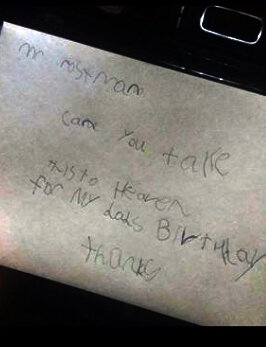 mr postman
can you take
this to Heaven
for my dads Birthday
thanks